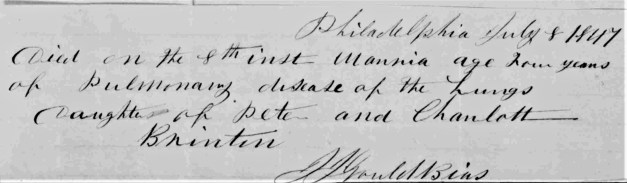 Philadelphia July 8 1847
Died on the 8th inst Mannia age Four years
of Pulmonary disease of the Lungs
Daughter of Peter and Charlott
Brinton
J J Gould Bias